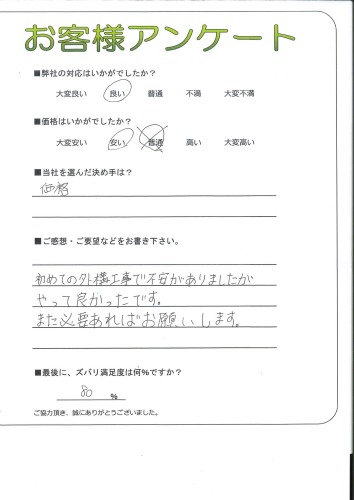 お客様アンケート
■弊社の対応はいかがでしたか？
大変良い 良い 普通 不満 大変不満
■価格はいかがでしたか？
大変安い 安い 普通 高い 大変高い
■当社を選んだ決め手は？
価格
■ご感想・ご要望などをお書き下さい。
初めての外構工事で不安がありましたが
やって良かったです。
また必要あればお願いします。
■最後に、ズバリ満足度は何%ですか？
80 %
ご協力頂き、誠にありがとうございました。